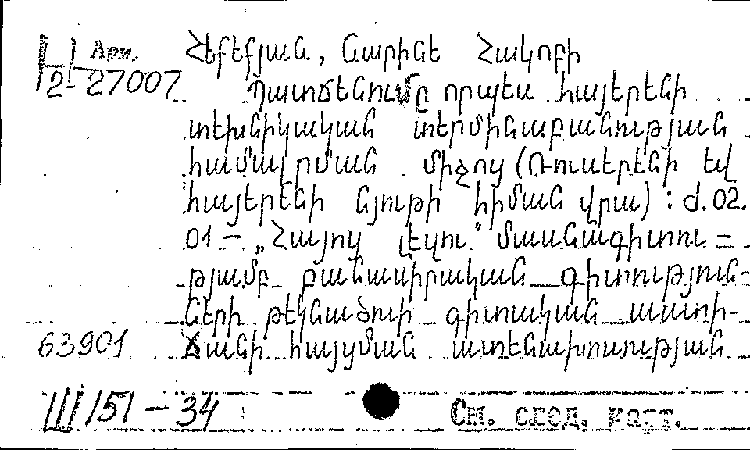 Арм. Հեքեքյան, Նարինե Հակոբի
12-27007 Պատճենումը որպես հայերենի
տեխնիկական տերմինաբանության
համալրման միջոց (Ռուսերենի եվ
հայերենի նյութի հիման վրա) : Ժ.02.
01 – „Հայոց լեզու“ մասնագիտու =
թյամբ բանասիրական գիտություն-
ների թեկնածուի գիտական աստի-
63901 ճանի հայցման ատենախոսության
III/151 – 34 См. след. карт.